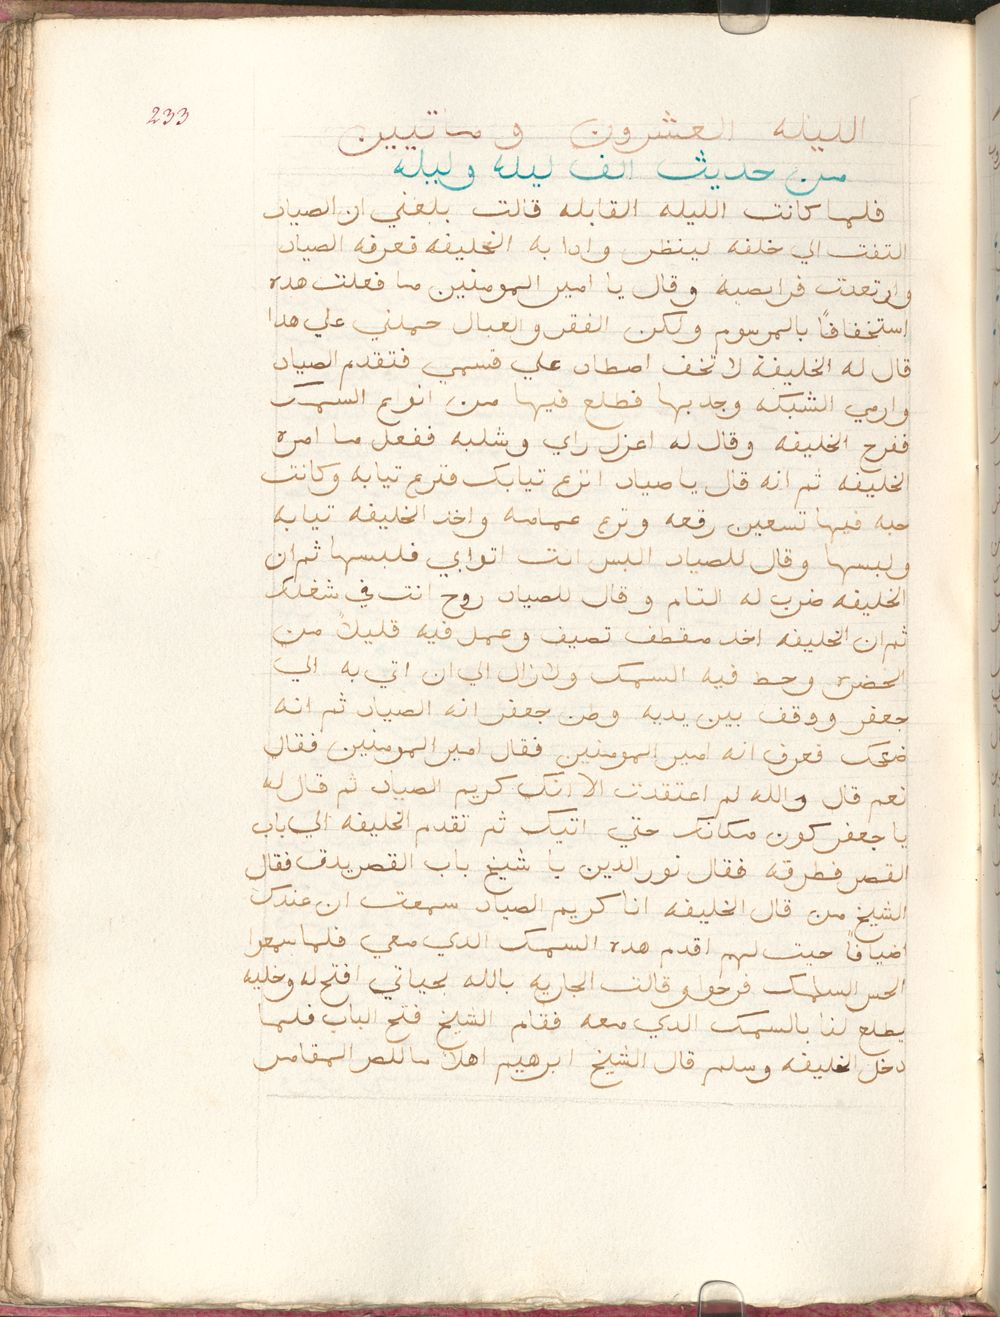 233
الليله العشرون وماتيين
من حديث الف ليله وليله
فلما كانت الليله القابله قالت بلغني ان الصياد
التفت الي خلفه لينظر وادا به الخليفه فعرفه الصياد
وارتعدت فرايصه وقال يا امير المومنين ما فعلت هده
استخفافاً بالمرسوم ولكن الفقر والعيال حملني علي هدا
قال له الخليفة لا تخف اصطاد علي قسمي فتقدم الصياد
وارمي الشبكه وجدبها فطلع فيها من انواع السمك
ففرح الخليفه وقال له اعزل راي وشلبه ففعل ما امره
الخليفه ثم انه قال يا صياد انزع تيابك فنزع تيابه وكانت
جبه فيها تسعين رقعه ونزع عمامه واخد الخليفه تيابه
ولبسها وقال للصياد البس انت اتوابي فلبسها ثم ان
الخليفه ضرب له التام وقال للصياد روح انت في شغلك
ثم ان الخليفه اخد مقطف نصيف وعمل فيه قليلاً من
الخضره وحط فيه السمك ولازال الي ان اتي به الي
جعفر ووقف بين يديه وظن جعفر انه الصياد ثم انه
ضحك فعرف انه امير المومنين فقال امير المومنين فقال
نعم قال والله لم اعتقدت الا انك كريم الصياد ثم قال له
يا جعفر كون مكانك حتي اتيك ثم تقدم الخليفه الي باب
القصر فطرقه فقال نور الدين يا شيخ باب القصر يدق فقال
الشيخ من قال الخليفه انا كريم الصياد سمعت ان عندك
اضيافاً حيت لهم اقدم هده السمك الدي معي فلما سمعوا
الحس السمك فرحوا وقالت الجاريه بالله بحياتي افتح له وخليه
يطلع لنا بالسمك الدي معه فقام الشيخ فتح الباب فلما
دخل الخليفه وسلم قال الشيخ ابرهيم اهلا ماللص المقامر